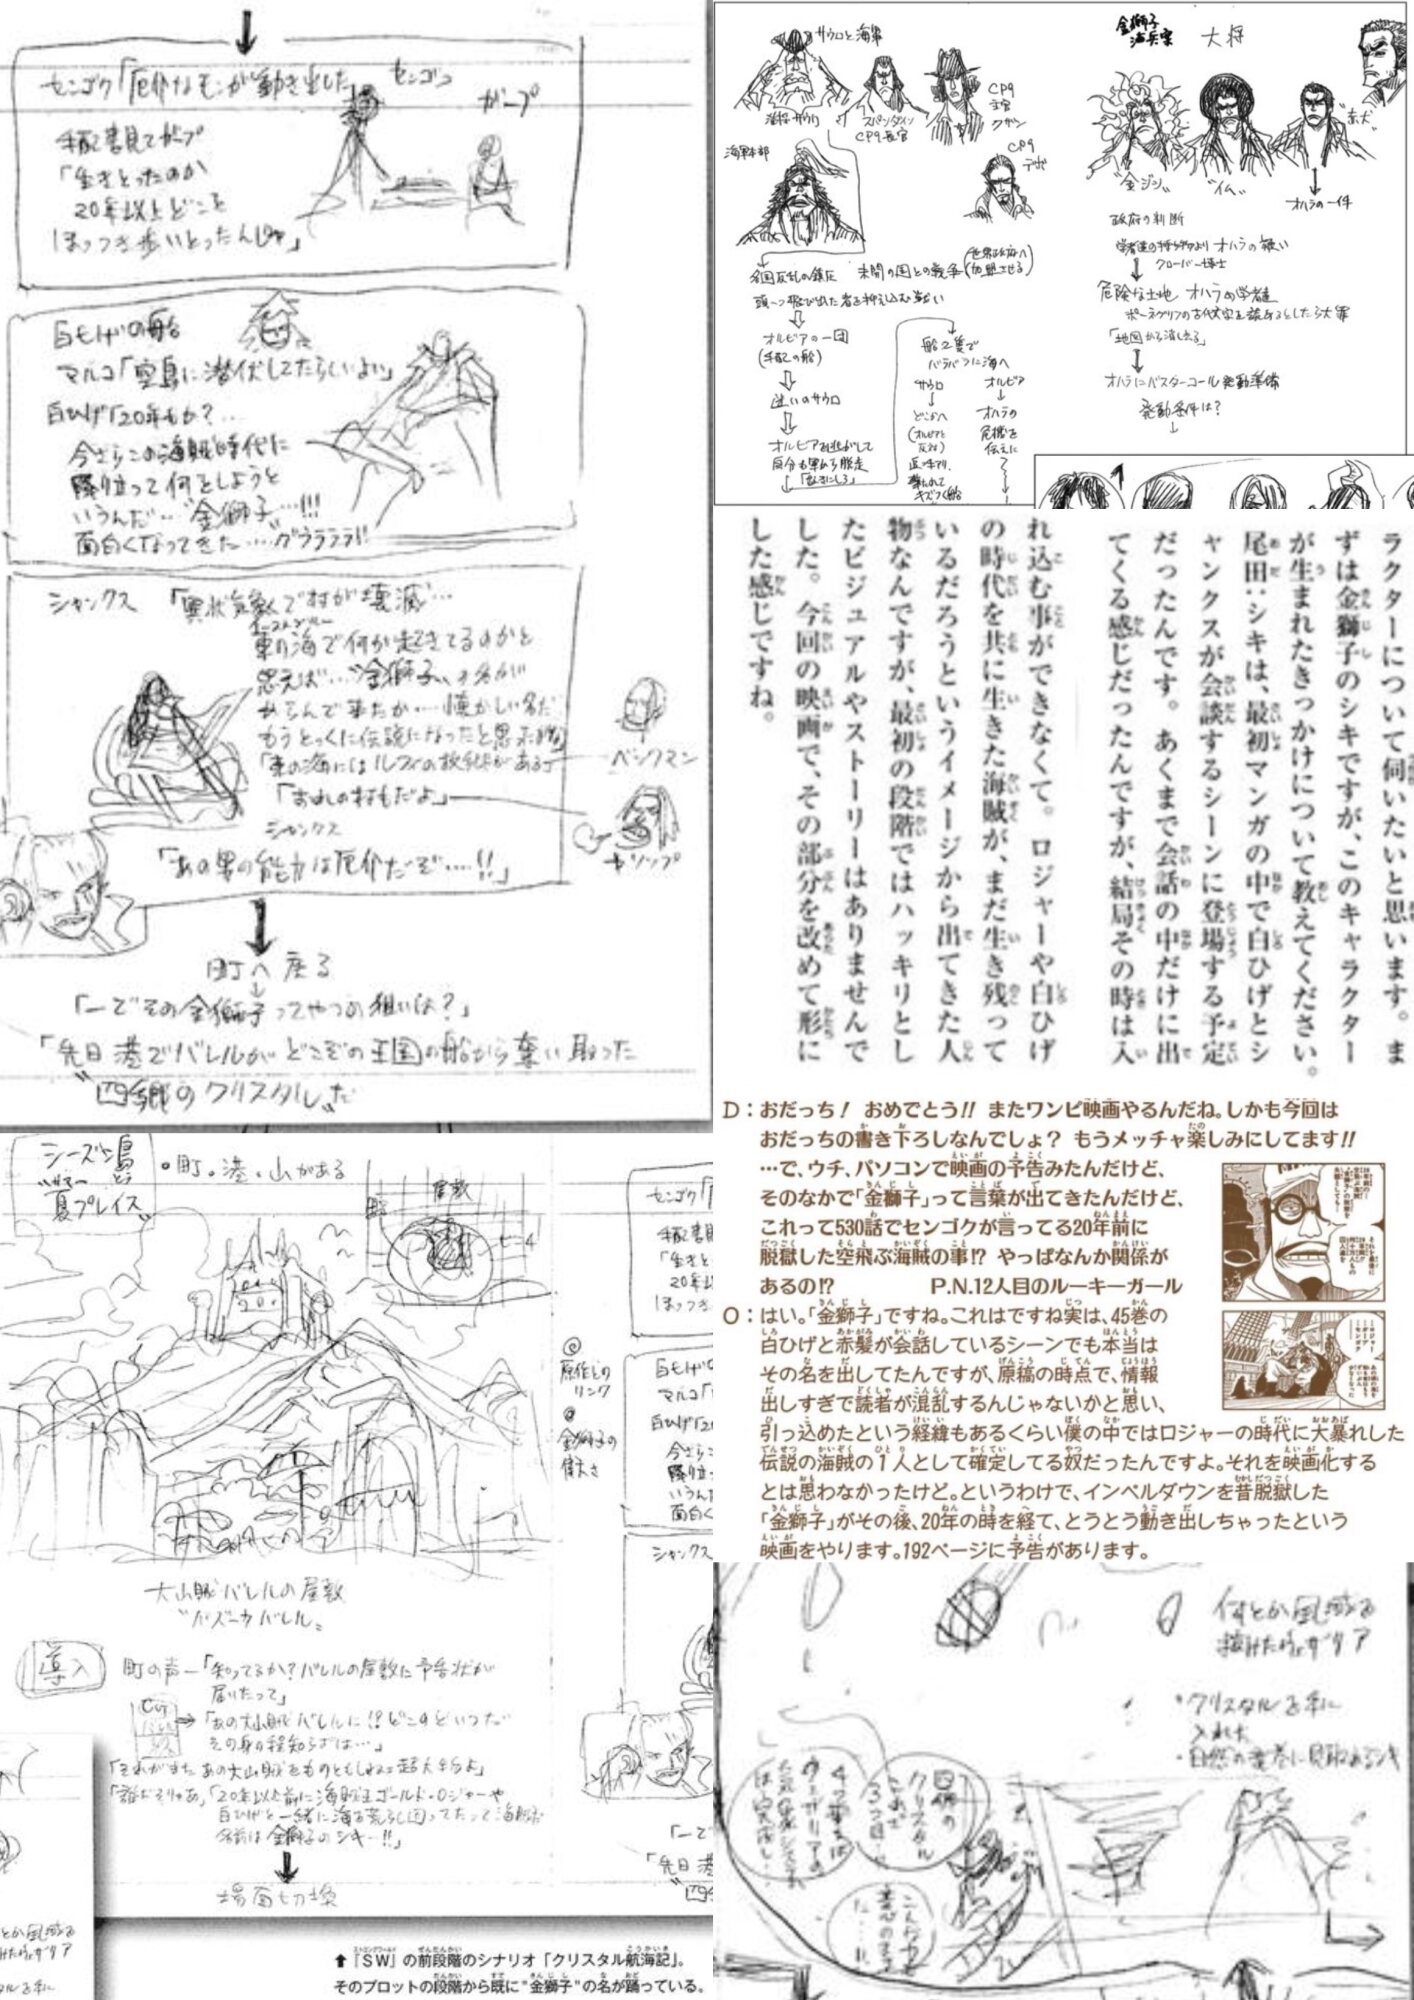 センゴク「厄介なモンが動き出した」
センゴク
ガープ
手配書見てガープ
「生きとったのか
20年以上どこを
ほっつき歩いとったんじゃ」
白ヒゲの船
マルコ「空島に潜伏してたらしいよい」
白ひげ「20年もか?…
今さらこの海賊時代に
降り立って何をしようと
いうんだ…“金獅子”…!!!
面白くなってきた……グラララ!!
シャンクス
「異常気象で村が壊滅…
東の海で何か起きてるのかと
思えば…“金獅子”の名が
懐かしい名だ
もうとっくに伝説になったと思ったが」
「東の海にはルフィの故郷がある」
ベックマン
「おれの村もだよ」
ヤソップ
シャンクス
「あの男の能力は厄介だぞ……!!」
町へ戻る
「―でその金獅子ってやつの狙いは?」
「先日港でバレルがどこぞの王国の船から奪い取った
“四郷のクリスタル”だ
サウロと海軍
海軍サウロ
スパンダイン
CP9長官
CP9
クザン
海軍本部
CP9
各国反乱の鎮圧
未開の国との戦争
(世界政府へ
加盟させる)
頭一つ飛び出た者を押え込む戦い
オルビアの一団
(手配の船)
迷いのサウロ
オルビアを逃がして
自分も軍から脱走
船2隻で
バラバラに海へ
サウロ
どこかへ
(オルビアと
反対)
オルビア
オハラの
危機を
伝えに
金獅子
海兵案
大将
“金ジシ”
“イム”
“赤犬”
オハラの一件
政府の判断
オハラの疑い
クローバー博士
危険な土地 オハラの学者達
ポーネグリフの古代文字を読めるとしたら大罪
「地図から消し去る」
オハラにバスターコール発動準備
発動条件は?
ラクターについて伺いたいと思います。ま
ずは金獅子のシキですが、このキャラクター
が生まれたきっかけについて教えてください。
尾田:シキは、最初マンガの中で白ひげとシ
ャンクスが会談するシーンに登場する予定
だったんです。あくまで会話の中だけに出
てくる感じだったんですが、結局その時は入
れ込む事ができなくて。ロジャーや白ひげ
の時代を共に生きた海賊が、まだ生き残って
いるだろうというイメージから出てきた人
物なんですが、最初の段階ではハッキリとし
たビジュアルやストーリーはありませんで
した。今回の映画で、その部分を改めて形に
した感じですね。
D:おだっち! おめでとう!! またワンピ映画やるんだね。しかも今回は
おだっちの書き下ろしなんでしょ? もうメッチャ楽しみにしてます!!
…で、ウチ、パソコンで映画の予告みたんだけど、
そのなかで「金獅子」って言葉が出てきたんだけど、
これって530話でセンゴクが言ってる20年前に
脱獄した空飛ぶ海賊の事!? やっぱなんか関係が
あるの!? P.N.12人目のルーキーガール
O:はい。「金獅子」ですね。これはですね実は、45巻の
白ひげと赤髪が会話しているシーンでも本当は
その名を出してたんですが、原稿の時点で、情報
出しすぎで読者が混乱するんじゃないかと思い、
引っ込めたという経緯もあるくらい僕の中ではロジャーの時代に大暴れした
伝説の海賊の1人として確定してる奴だったんですよ。それを映画化する
とは思わなかったけど。というわけで、インペルダウンを昔脱獄した
「金獅子」がその後、20年の時を経て、とうとう動き出しちゃったという
映画をやります。192ページに予告があります。
シーズン島
夏プレイス”
・町。港。山がある
屋敷
原作との
リンク
金獅子の
偉大さ
大山賊バレルの屋敷
“バズーカバレル”
導入
町の声―「知ってるか?バレルの屋敷に予告状が
届いたって」
「あの大山賊バレルに!?どこのどいつだ
その身の程知らずは…」
「それがまたあの大山賊をものともしねェ超大物よ」
「誰だそりゃあ」「20年以上前に海賊王ゴールド・ロジャーや
白ひげと一緒に海を荒らし回ってたって海賊だ
名前は金獅子のシキー!!」
場面切換
⬆『SW』の前段階のシナリオ「クリスタル航海記」。
そのプロットの段階から既に“金獅子”の名が踊っている。
・クリスタルを手に
入れた
四郷の
クリスタル